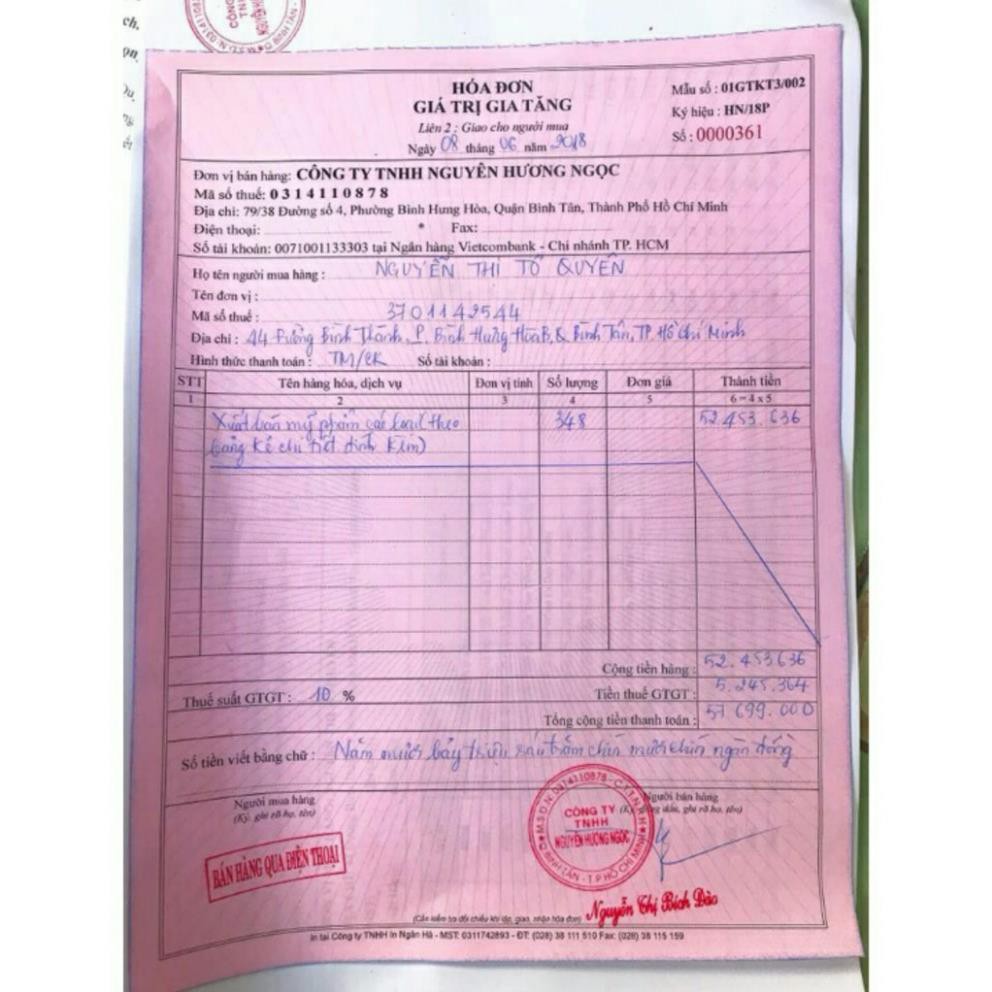 HÓA ĐƠN
GIÁ TRỊ GIA TĂNG
Liên 2 : Giao cho người mua
Ngày 08 tháng 06 năm 2018
Mẫu số : 01GTKT3/002
Ký hiệu : HN/18P
Số : 0000361
Đơn vị bán hàng: CÔNG TY TNHH NGUYÊN HƯƠNG NGỌC
Mã số thuế: 0314110878
Địa chỉ: 79/38 Đường số 4, Phường Bình Hưng Hòa, Quận Bình Tân, Thành Phố Hồ Chí Minh
Điện thoại: * Fax:
Số tài khoản: 0071001133303 tại Ngân hàng Vietcombank - Chi nhánh TP. HCM
Họ tên người mua hàng : NGUYỄN THỊ TỐ QUYÊN
Tên đơn vị :
Mã số thuế : 3701142544
Địa chỉ : 44 Đường Bình Thành, P. Bình Hưng Hòa B, Q Bình Tân, TP. Hồ Chí Minh
Hình thức thanh toán : TM/CK Số tài khoản :
STT Tên hàng hóa, dịch vụ Đơn vị tính Số lượng Đơn giá Thành tiền
1 2 3 4 5 6 = 4 x 5
Xuất bán mỹ phẩm các loại (theo 348 52.453.636
bảng kê chi tiết đính kèm)
Cộng tiền hàng : 52.453.636
Thuế suất GTGT : 10 % Tiền thuế GTGT : 5.245.364
Tổng cộng tiền thanh toán : 57.699.000
Số tiền viết bằng chữ : Năm mươi bảy triệu sáu trăm chín mươi chín ngàn đồng
Người mua hàng
(Ký, ghi rõ họ, tên)
Người bán hàng
(Ký, đóng dấu, ghi rõ họ, tên)
BÁN HÀNG QUA ĐIỆN THOẠI
M.S.D.N: 0314110878 - C.T.T.N.H.H
CÔNG TY
TNHH
NGUYÊN HƯƠNG NGỌC
Q. BÌNH TÂN - T.P HỒ CHÍ MINH
Nguyễn Thị Bích Đào
(Cần kiểm tra đối chiếu khi lập, giao, nhận hóa đơn)
In tại Công ty TNHH In Ngân Hà - MST: 0311742893 - ĐT: (028) 38 111 510 Fax: (028) 38 115 159